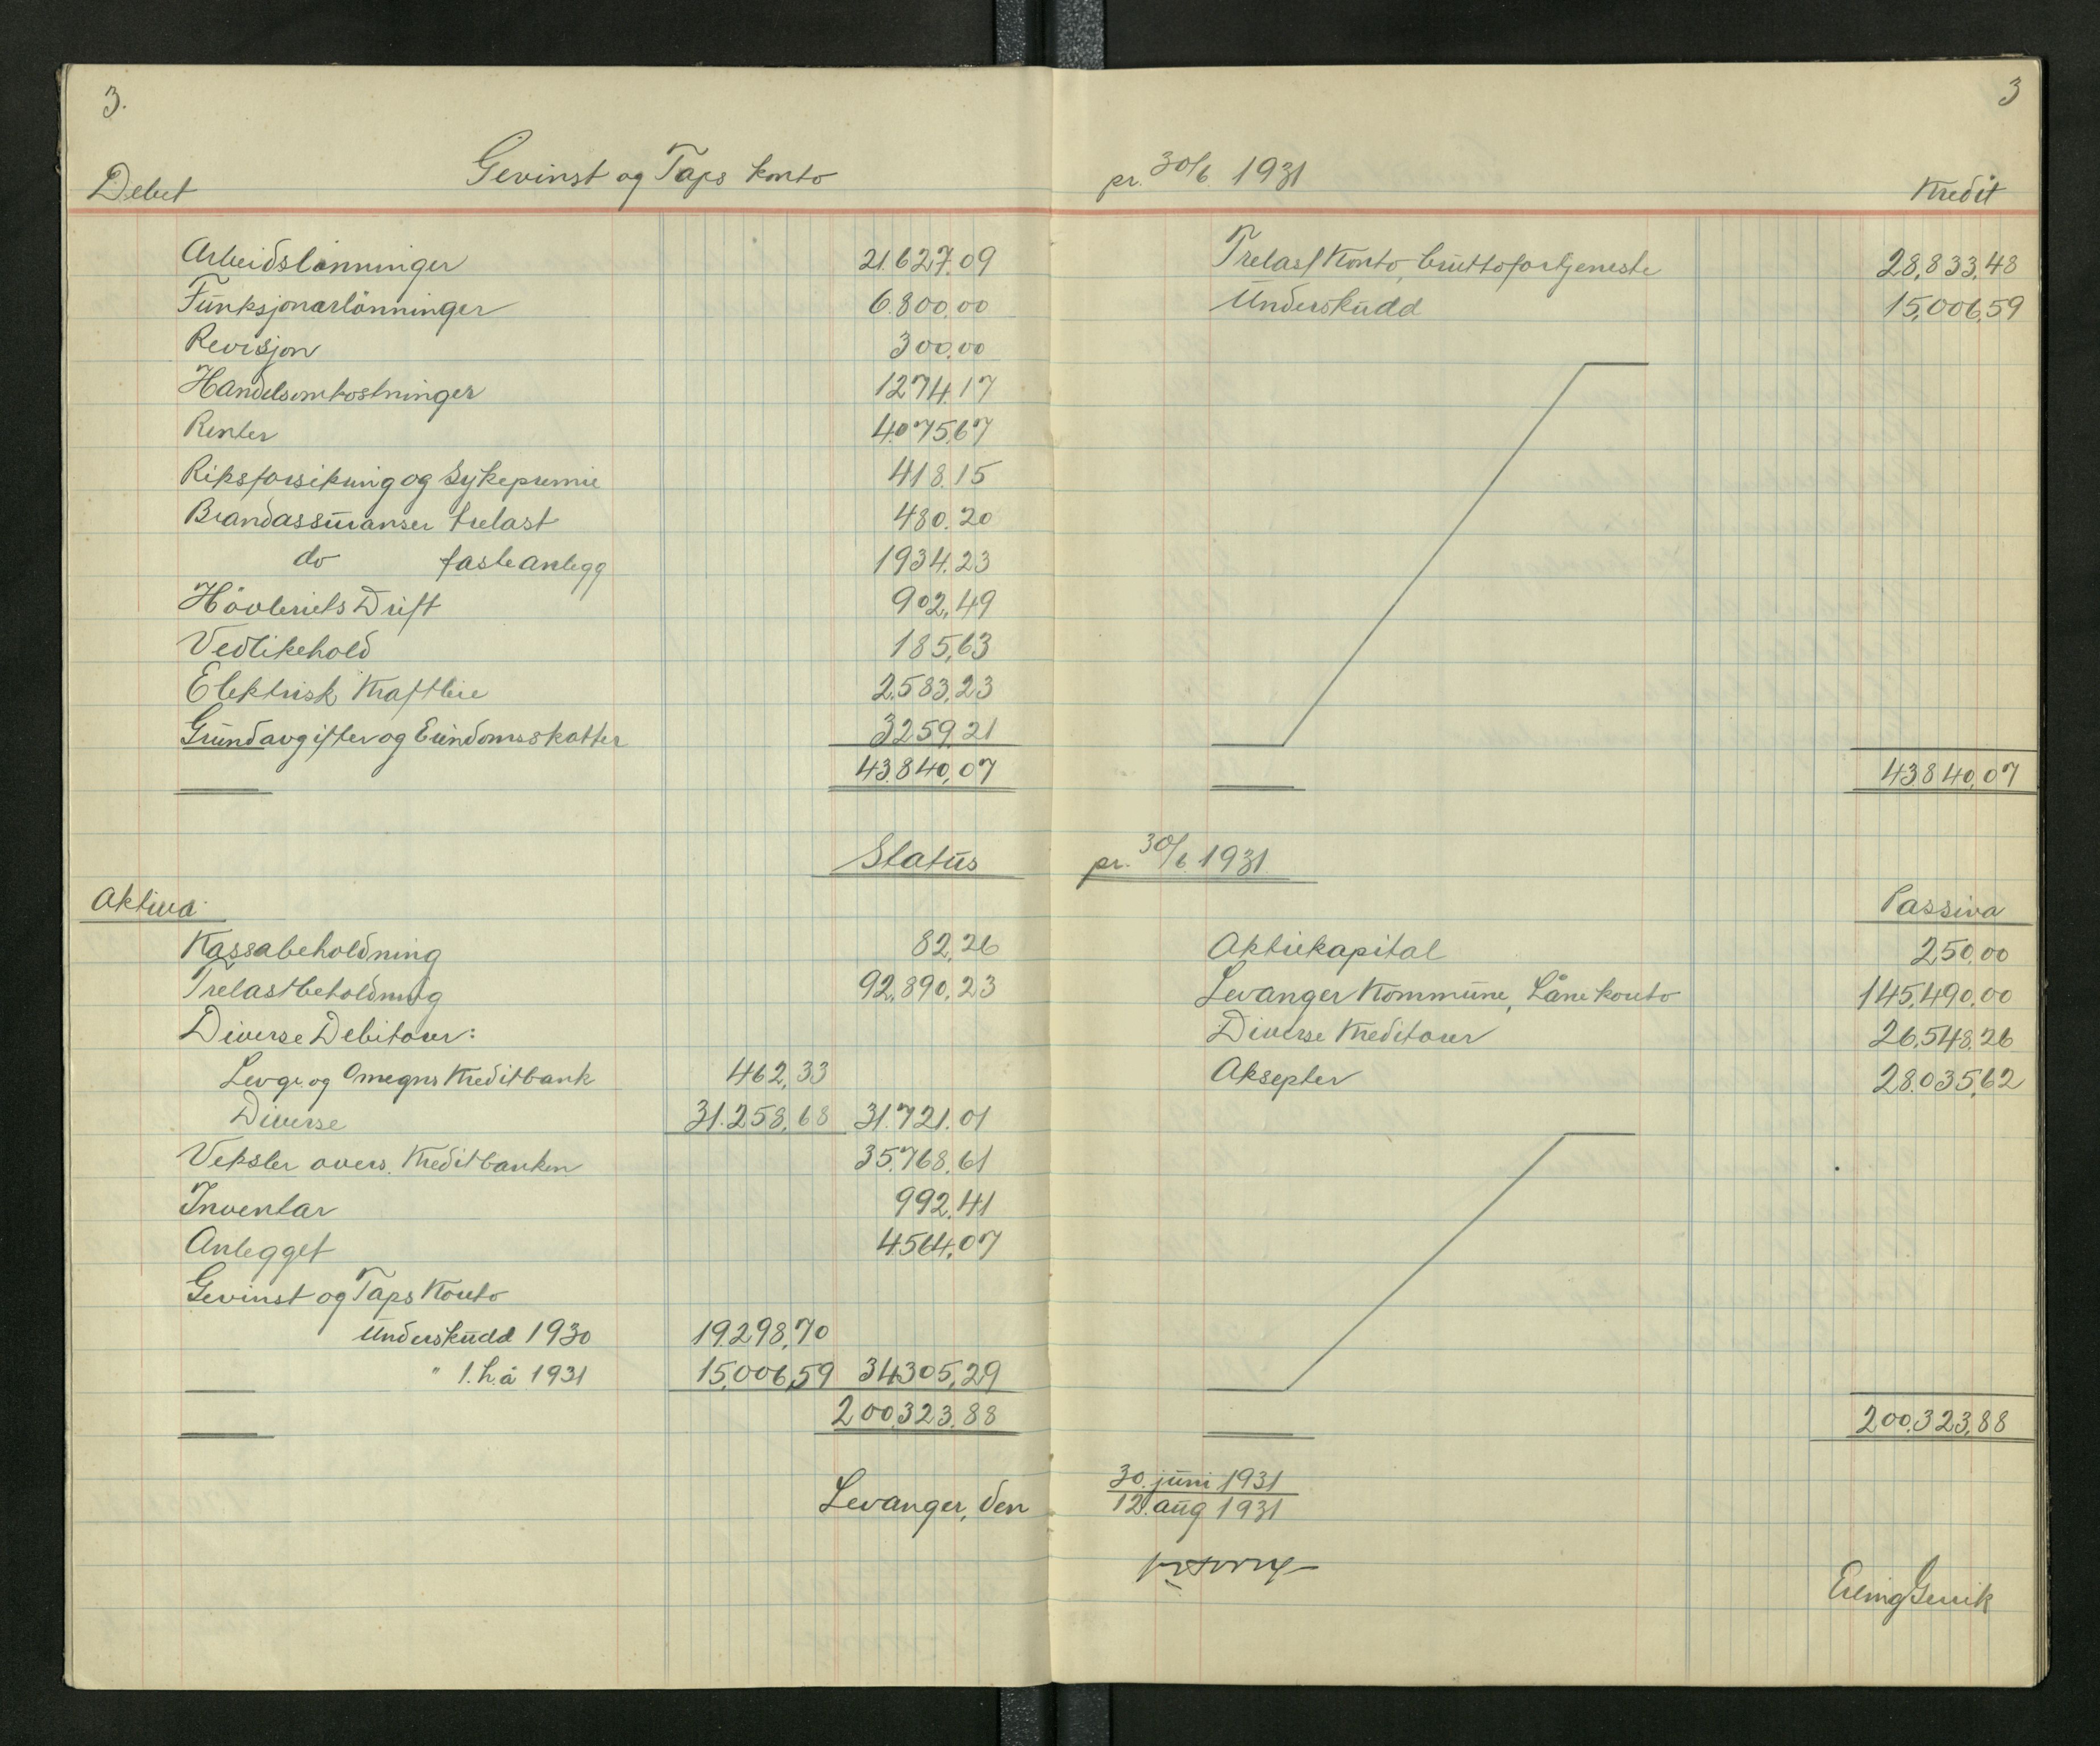 3.
Debet
Gevinst og Taps konto
Arbeidslønninger 21.627.09
Funksjonærlönninger 6.800.00
Revisjon 300.00
Handelsomkostninger 1274.17
Renter 4.075.67
Riksforsikring og Sykepremie 418.15
Brandassuranser trelast 480.20
do faste anlegg 1934.23
Hövleriets Drift 902,49
Vedlikehold 185,63
Elektrisk Kraftleie 2.583,23
Grundavgifter og Eiendomsskatter 3259.21
43.840,07
Status
Aktiva
Kassabeholdning 82,26
Trelastbeholdning 92,890,23
Diverse Debitorer:
Levgr. og Omegns Kreditbank 462,33
Diverse 31.258,68 31.721.01
Veksler overs. Kreditbanken 35.768.61
Inventar 992,41
Anlegget 4564,07
Gevinst og Taps Konto
Underskudd 1930 19.298,70
" 1.h.å 1931 15.006,59 34305,29
200.323.88
Levanger, den
3
pr. 30/6 1931
Kredit
Trelast Konto, bruttofortjeneste 28,833,48
Underskudd 15,006,59
43.840,07
pr. 30/6 1931
Passiva
Aktiekapital 250,00
Levanger Kommune, Lånekonto 145,490,00
Diverse Kreditorer 26,548,26
Aksepter 28.035,62
200.323,88
30. juni 1931
12. aug 1931